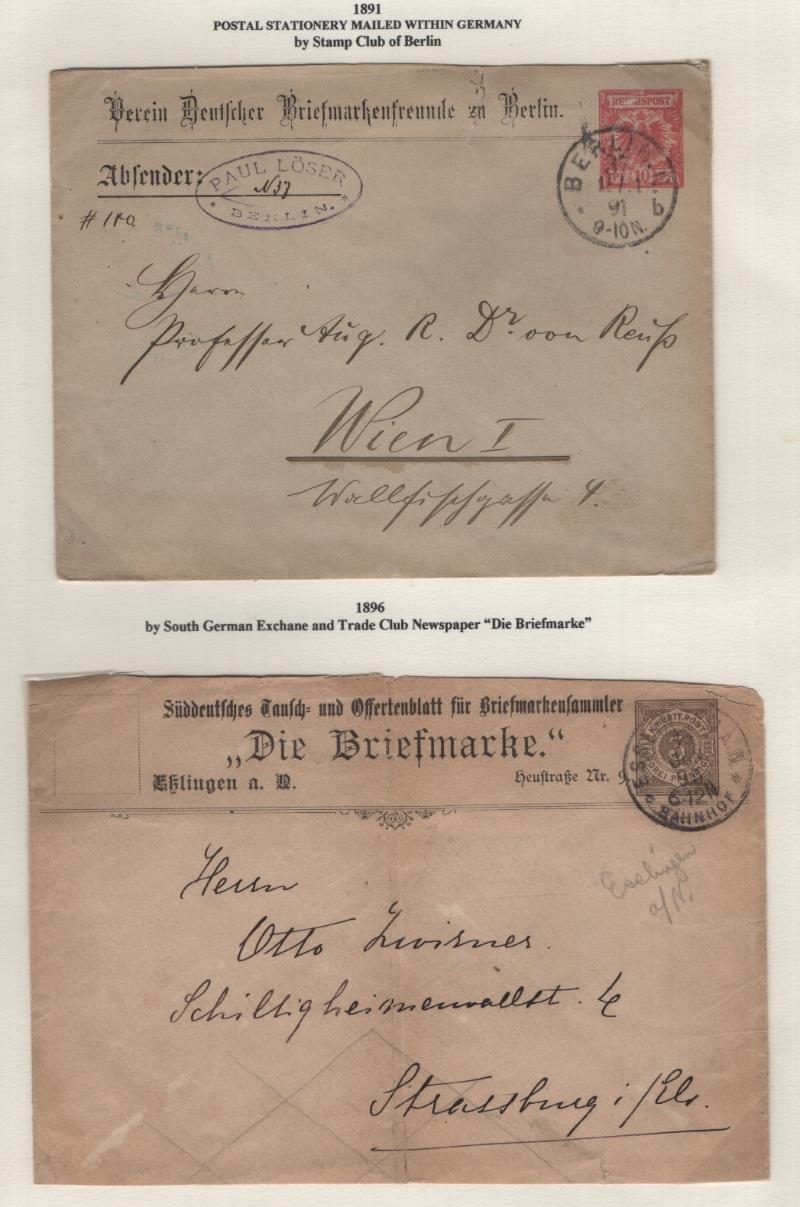 1891
POSTAL STATIONERY MAILED WITHIN GERMANY
by Stamp Club of Berlin
Verein Deutscher Briefmarkenfreunde zu Berlin.
REICHSPOST
10
Absender:
PAUL LÖSER
N37
* BERLIN. *
BERLIN. N
91 b
9-10N.
# 110
Herrn
Professor Aug. R. Dr von Reuß
Wien I
Wallfischgasse 4.
1896
by South German Exchane and Trade Club Newspaper “Die Briefmarke”
Süddeutsches Tausch- und Offertenblatt für Briefmarkensammler
„Die Briefmarke.“
Eßlingen a. N.
Heustraße Nr. 9.
K.WÜRTT.POST
3
DREI PFENNIG
6-12N
* BAHNHOF *
Esslingen
a/N.
Herrn
Otto Zwirner.
Schiltigheimerwallst. 4
Strassburg i/Els.